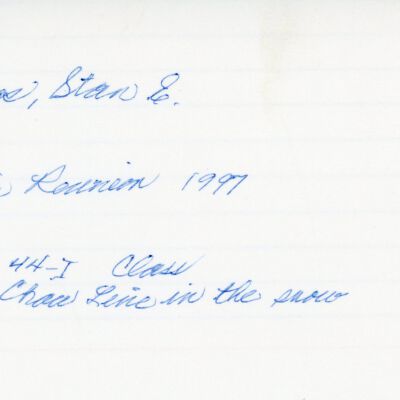 Stan E.
Reunion 1997
44-I Class
Chow Line in the snow